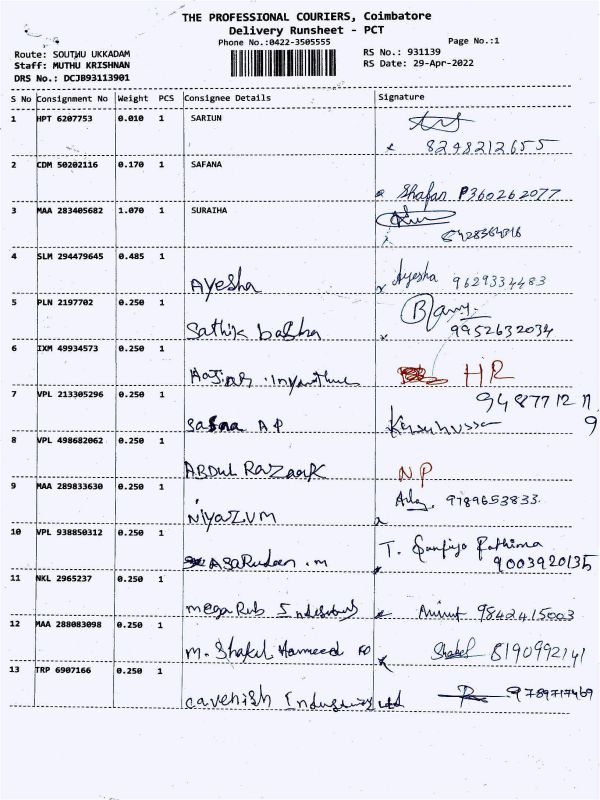 THE PROFESSIONAL COURIERS, Coimbatore
Delivery Runsheet - PCT
Phone No.:0422-3505555
Page No.:1
Route: SOUTHU UKKADAM
RS No.: 931139
Staff: MUTHU KRISHNAN
RS Date: 29-Apr-2022
DRS No.: DCJB93113901
S No Consignment No Weight PCS Consignee Details Signature
1 HPT 6207753 0.010 1 SARIUN
8248212655
2 CDM 50202116 0.170 1 SAFANA
Shafan 9360262077
3 MAA 283405682 1.070 1 SURAIHA
4 SLM 294479645 0.485 1
Ayesha Ayesha 9629334483
5 PLN 2197702 0.250 1
Sathik basha 9952632034
6 IXM 49934573 0.250 1
HR
7 VPL 213305296 0.250 1
94877 12 11
9
A P
8 VPL 498682062 0.250 1
ABDUL RAZAARK NP
9 MAA 289833630 0.250 1
9789653833
NIYAZ.VM
10 VPL 938850312 0.250 1
ASARUdeen .m T. Fathima
9003920135
11 NKL 2965237 0.250 1
mega Rub Industries 9842415003
12 MAA 288083098 0.250 1
M. Shakil Hameed 8190992141
13 TRP 6907166 0.250 1
cavenish Industries Ltd 9789717469